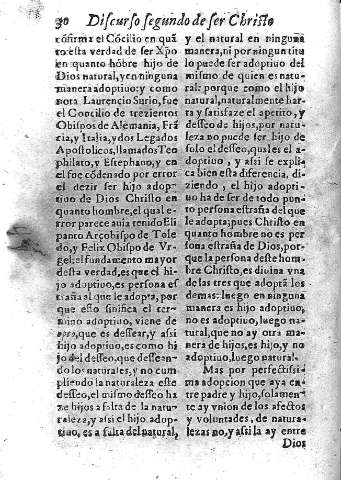 30 Discurso segundo de ser Christo
cõfirma el Cõcilio en quã
to esta verdad de ser Xpo
en quanto hõbre hijo de
Dios natural, y en ninguna
manera adoptiuo: y como
nota Laurencio Surio, fue
el Concilio de trezientos
Obispos de Alemania, Frã
cia, y Italia, y dos Legados
Apostolicos, llamados Teo
philato, y Estephano, y en
el fue cõdenado por error
el dezir ser hijo adop-
tiuo de Dios Christo en
quanto hombre, el qual e-
rror parece auia tenido Eli
panto Arçobispo de Tole
do, y Felix Obispo de Vr-
gel: el fundamento mayor
desta verdad, es que el hi-
jo adoptiuo, es persona es
traña al que le adopta, por
que esto sinifica el ter-
mino adoptiuo, viene de
que es dessear, y assi
hijo adoptiuo, es como hi
jo del desseo, que dessean-
do los naturales, y no cum
pliendo la naturaleza este
desseo, el mismo desseo ha
ze hijos a falta de la natu-
raleza, y assi el hijo adop-
tiuo, es a falta del natural,
y el natural en ninguna
manera, ni por ningun titu
lo puede ser adoptiuo del
mismo de quien es natu-
ral: porque como el hijo
natural, naturalmente har-
ta y satisfaze el apetito, y
desseo de hijos, por natu-
leza no puede ser hijo de
solo el desseo, que les el a-
doptiuo, y assi se explica
bien esta diferencia, di-
ziendo, el hijo adopti-
uo ha de ser de todo pun-
to persona estraña del que
le adopta; pues Christo en
quanto hombre no es per
sona estraña de Dios, por-
que la persona deste hom
bre Christo, es diuina vna
de las tres que adoptã los
demas: luego en ninguna
manera es hijo adoptiuo,
no es adoptiuo, luego na-
tural, que no ay otra ma-
nera de hijos, es hijo, y no
adoptiuo, luego natural.
Mas por perfectissi-
ma adopcion que aya en-
tre padre y hijo, solamen-
te ay vnion de los afectos
y voluntades, de natura-
lezas no, y assi la ay entre
Dios